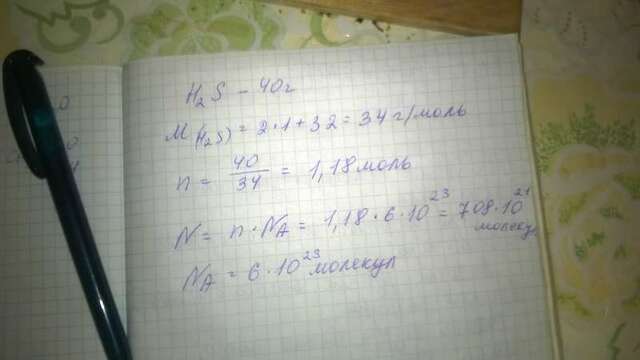 H₂S – 40г
M(H₂S) = 2·1+32 = 34 г/моль
n = 40/34 = 1,18 моль
N = n · Nᴀ = 1,18 · 6 · 10²³ = 708 · 10²¹ молекул
Nᴀ = 6 · 10²³ молекул